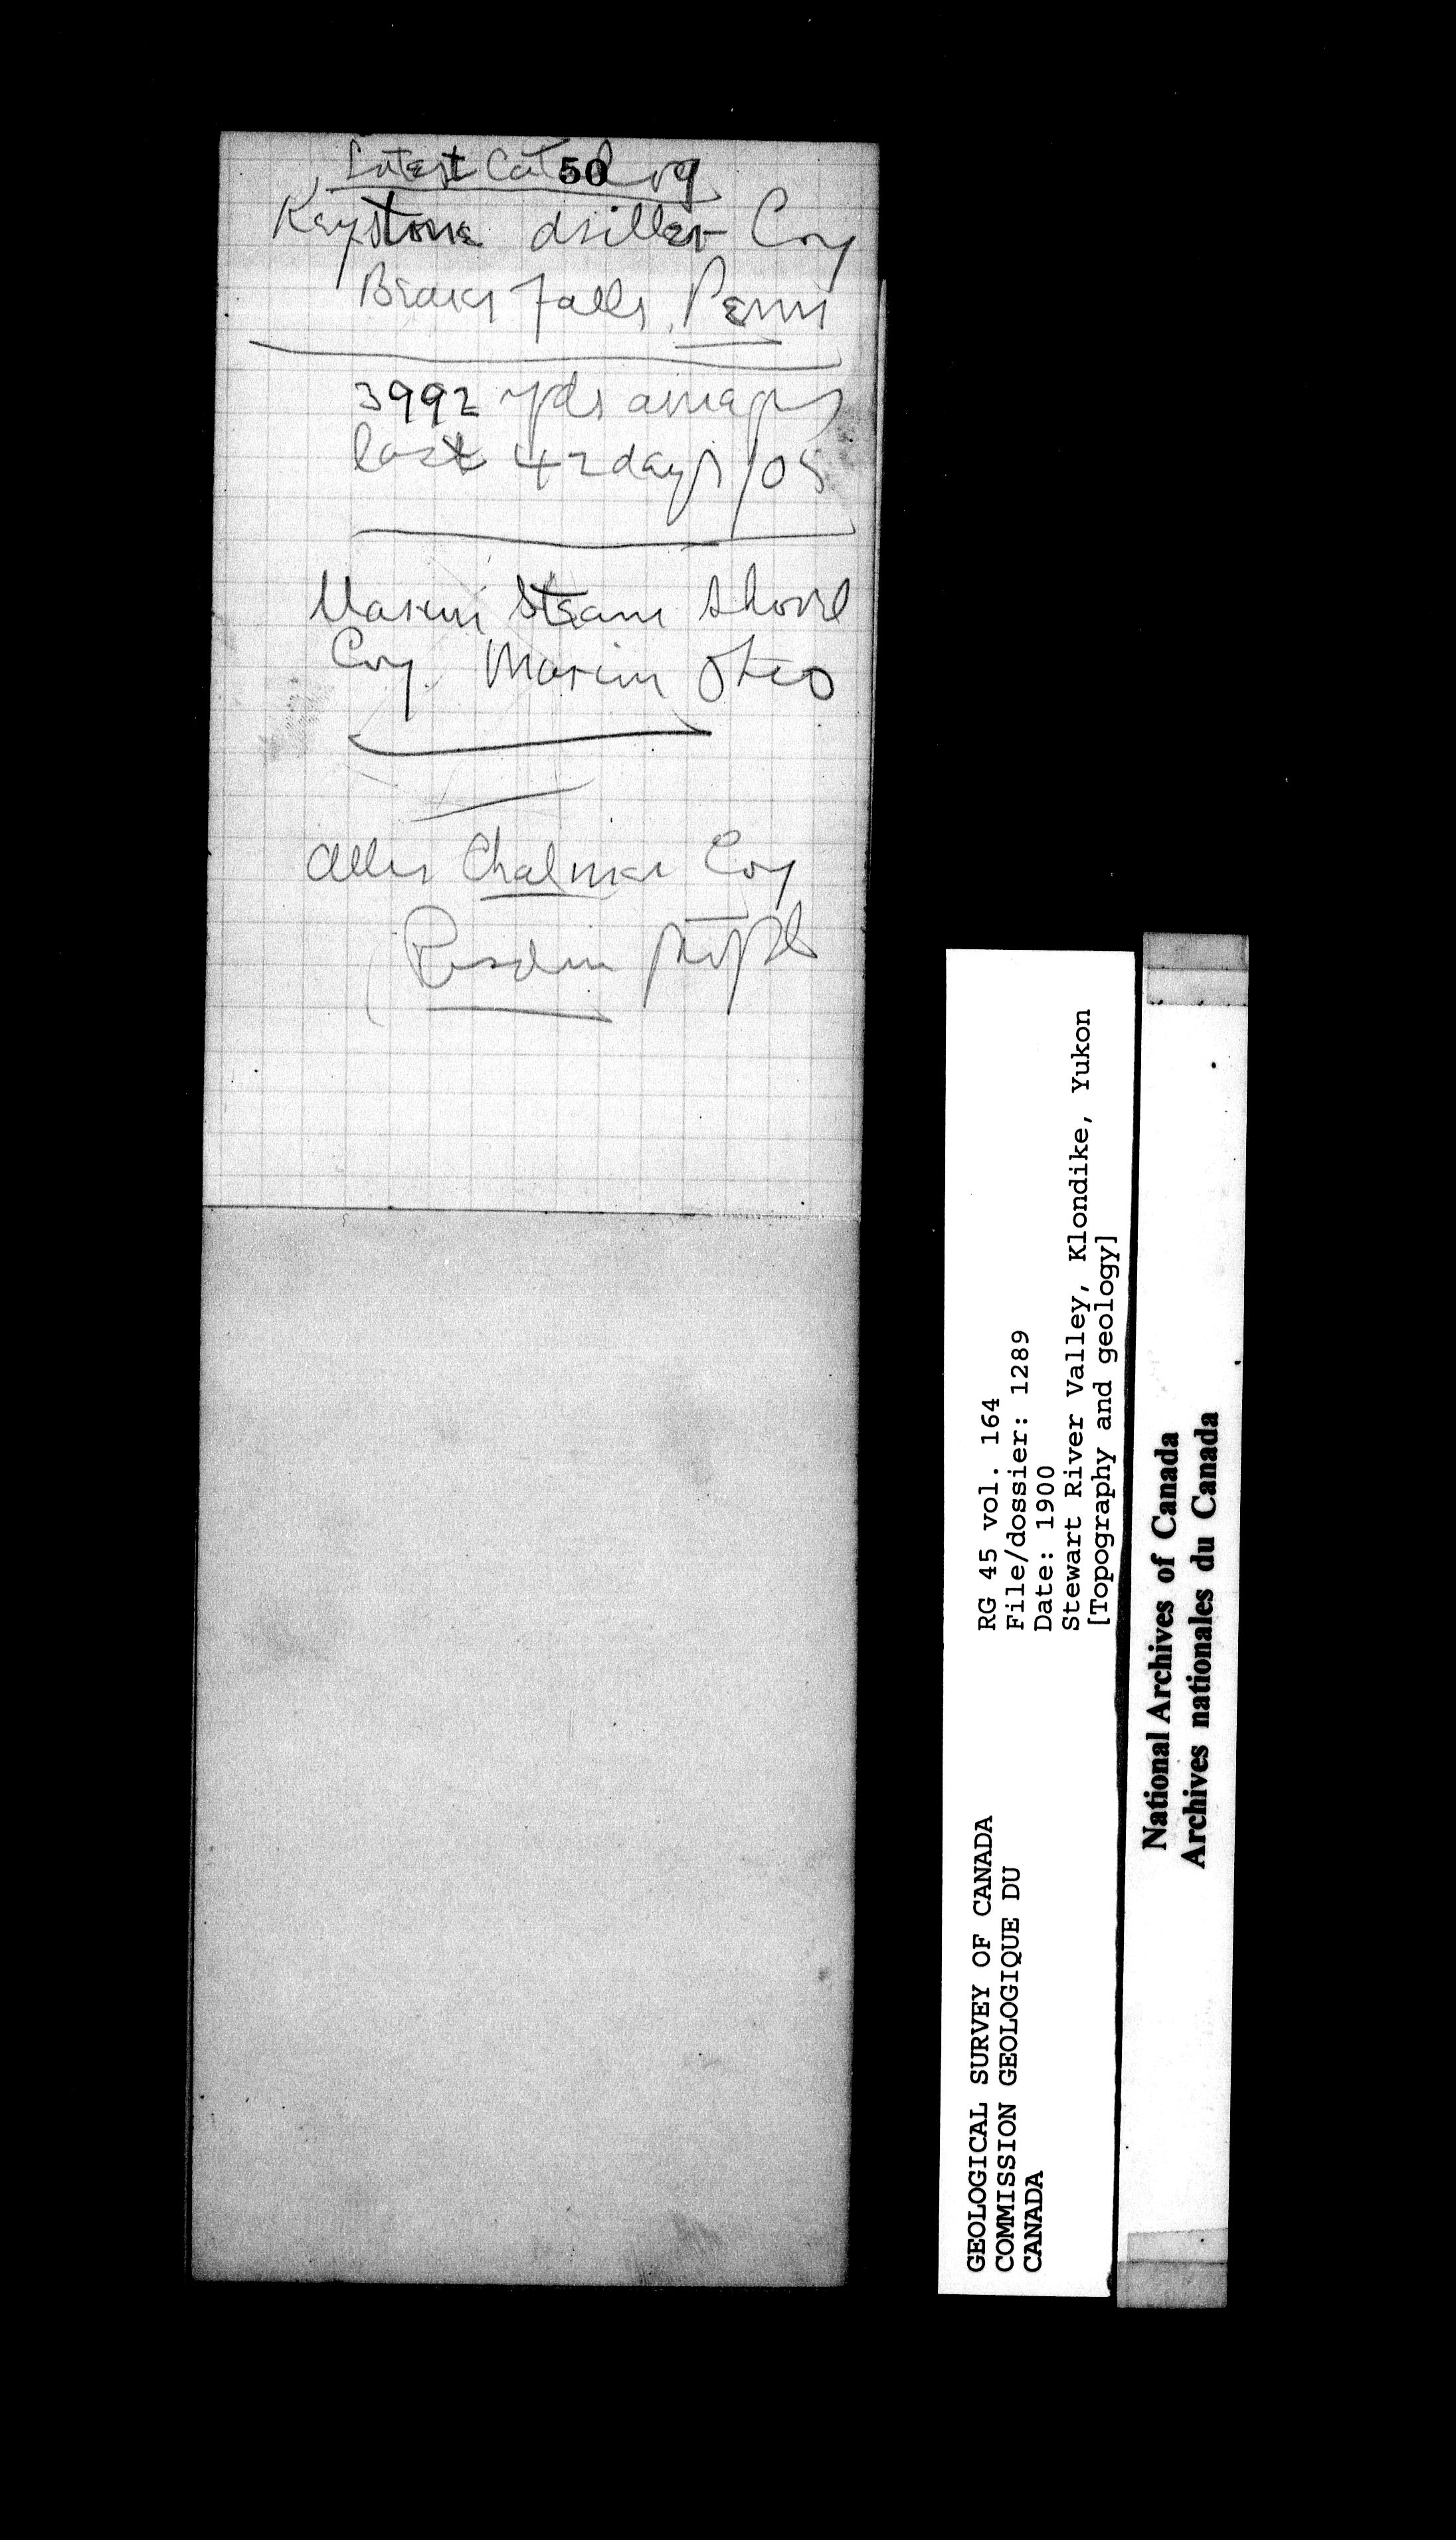 Latest Catalog
50
Keystone driller Coy
Beaver Falls, Penn
3992 yds average
last 42 days /05
Marion Steam Shovel
Coy. Marion Ohio
Allis Chalmers Coy
(Risdon people
RG 45 vol. 164
File/dossier: 1289
Date: 1900
Stewart River Valley, Klondike, Yukon
[Topography and geology]
GEOLOGICAL SURVEY OF CANADA
COMMISSION GEOLOGIQUE DU
CANADA
National Archives of Canada
Archives nationales du Canada